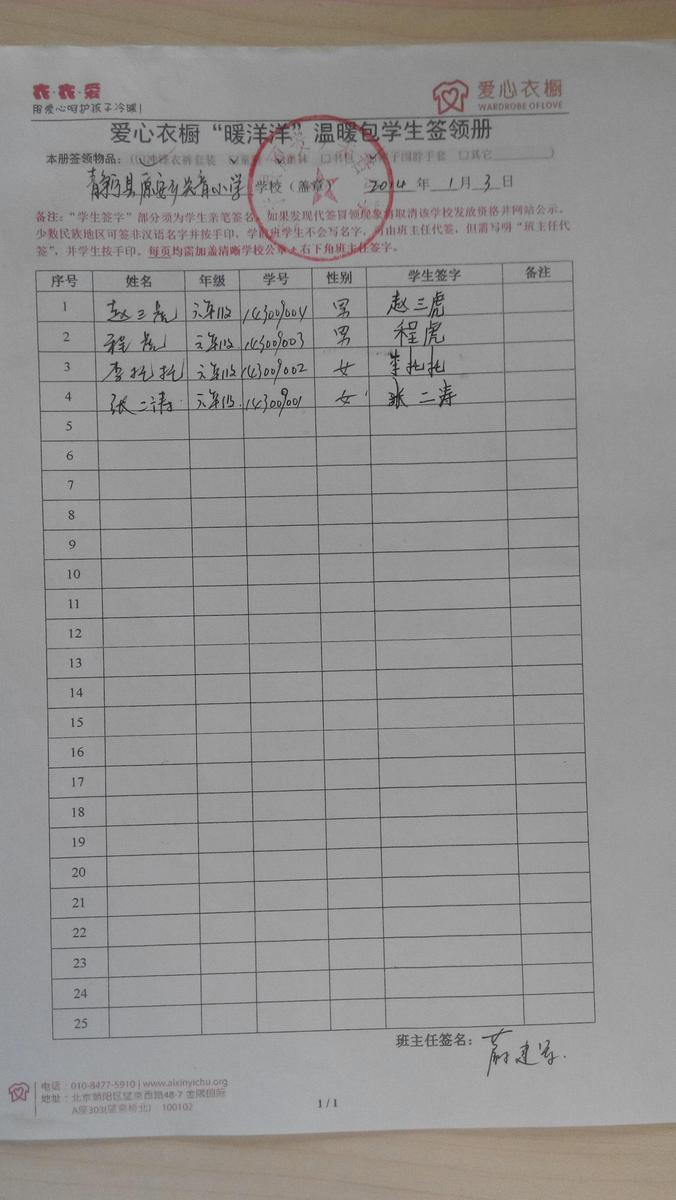 衣·衣·爱
用爱心呵护孩子冷暖!
爱心衣橱
WARDROBE OF LOVE
爱心衣橱“暖洋洋”温暖包学生签领册
本册签领物品:(☑冲锋衣裤套装 ☑ ☑ 袜 □书包 ☑帽子围脖手套 □其它 )
静 县 小学 学校(盖章) 2014 年 1 月 3 日
备注:“学生签字”部分须为学生亲笔签名,如果发现代签冒领现象将取消该学校发放资格并网站公示。
少数民族地区可签非汉语名字并按手印,学前班学生不会写名字,可由班主任代签,但需写明“班主任代
签”,并学生按手印。每页均需加盖清晰学校公章+右下角班主任签字。
序号 姓名 年级 学号 性别 学生签字 备注
1 赵三虎 六年级 143009004 男 赵三虎
2 程虎 六年级 143009003 男 程虎
3 李托托 六年级 143009002 女 李托托
4 张二涛 六年级 143009001 女 张二涛
5
6
7
8
9
10
11
12
13
14
15
16
17
18
19
20
21
22
23
24
25
班主任签名: 蔚建军
电话:010-8477-5910 | www.aixinyichu.org
地址:北京朝阳区望京西路48-7 金隅国际
A座303(望京桥北) 100102
1 / 1